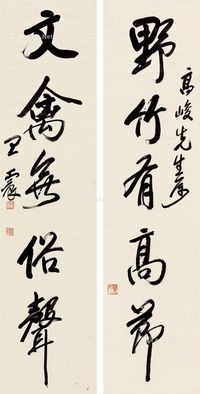 野竹有高節
高峻先生屬
文禽無俗聲
王震